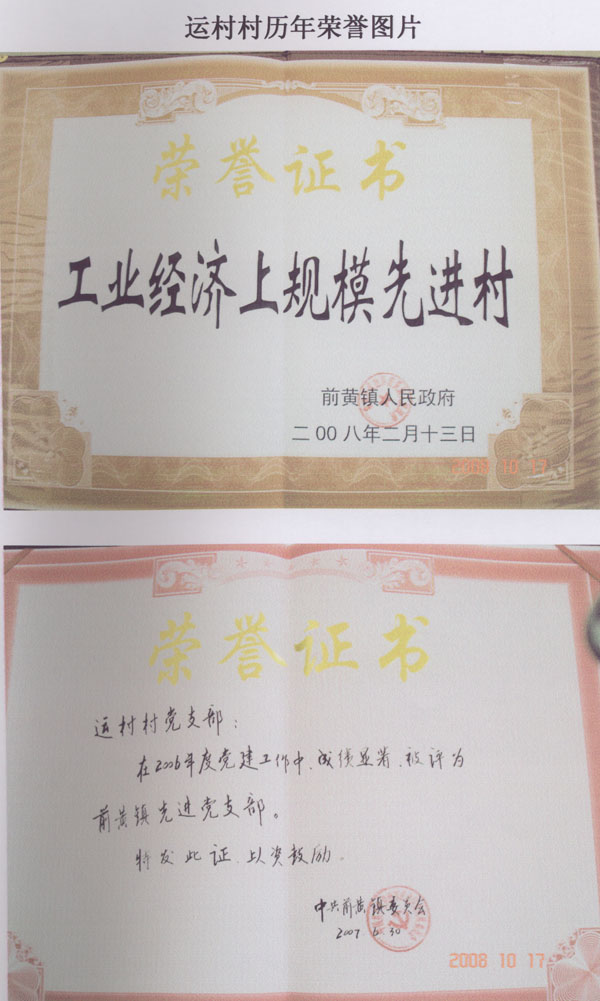 运村村历年荣誉图片
荣誉证书
工业经济上规模先进村
前黄镇人民政府
二00八年二月十三日
2008 10 17
荣誉证书
运村村党支部:
在2006年度党建工作中、成绩显著、被评为
前黄镇先进党支部。
特发此证、以资鼓励.
中共前黄镇委员会
2007.6.30
2008 10 17